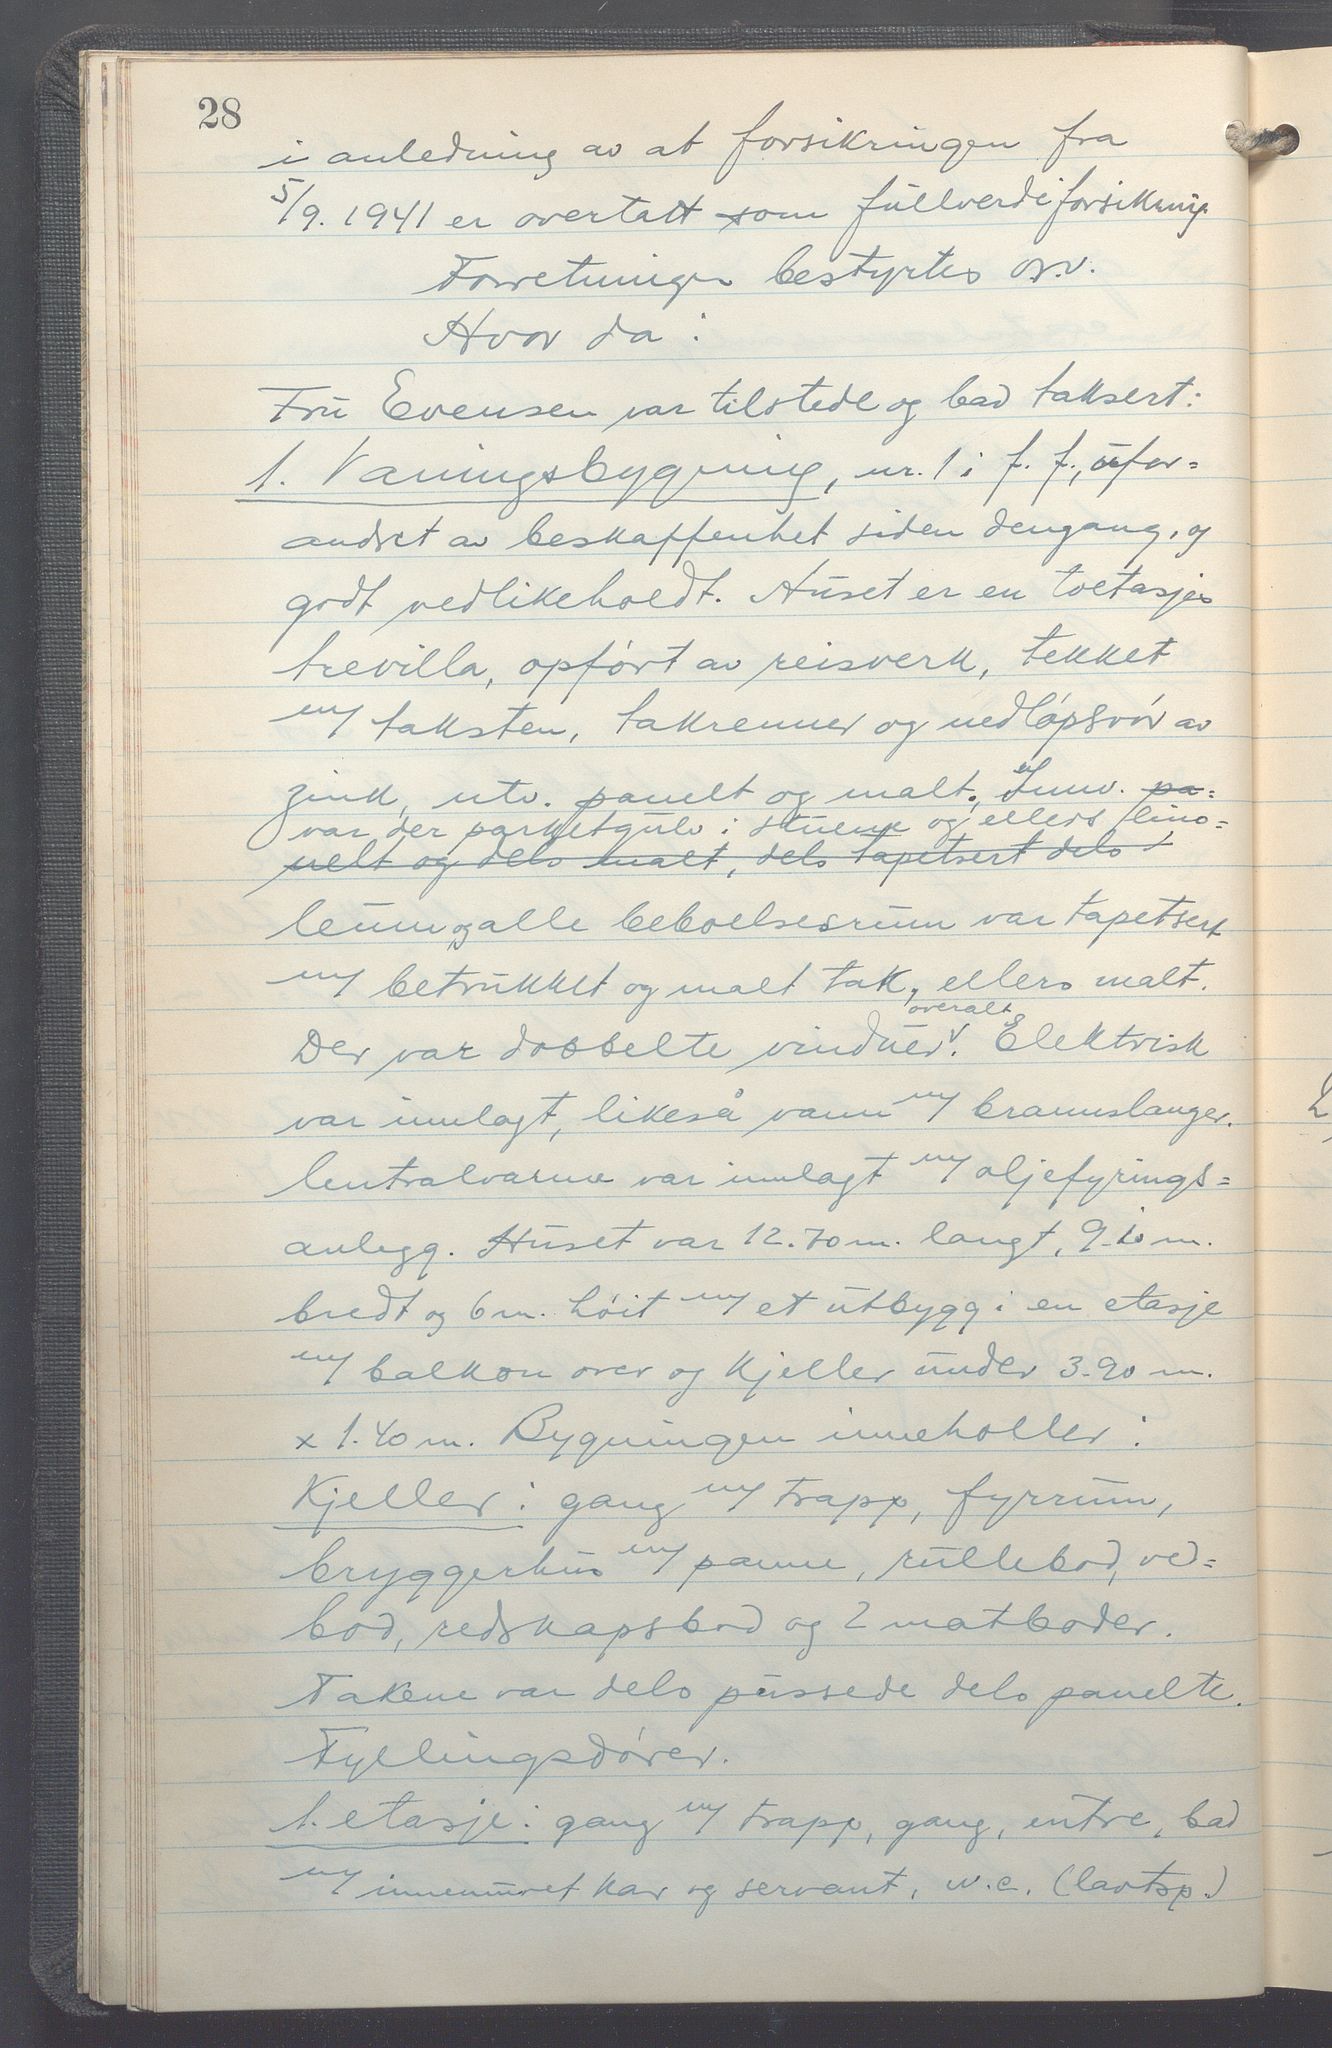 28
i anledning av at forsikringen fra
5/9. 1941 er overtatt som fullverdiforsikring.
Forretningen bestyrtes osv.
Hvor da:
Fru Evensen var tilstede og bad taksert:
1. Vaningsbygning, nr. 1 i f. f., ufor=
andret av beskaffenhet siden dengang, og
godt vedlikeholdt. Huset er en toetasjes
trevilla, opført av reisverk, tekket
m/ taksten, takrenner og nedløpsrør av
zink, utv. panelt og malt. Innv. pa=
var der parketgulv i stuene og ellers lino=
nelt og dels malt, dels tapetsert dels
leum og alle beboelsesrum var tapetsert
m/ betrukket og malt tak, ellers malt.
overalt
Der var dobbelte vinduer. Elektrisk
var innlagt, likeså vann m/ brannslanger.
Centralvarme var innlagt m/ oljefyrings=
anlegg. Huset var 12.70 m. langt, 9.10 m.
bredt og 6 m. høit m/ et utbygg i en etasje
m/ balkon over og kjeller under 3.90 m.
x 1.40 m. Bygningen inneholder:
Kjeller: gang m/ trapp, fyrrum,
bryggerhus m/ panne, rullebod, ved=
bod, redskapsbod og 2 matboder.
Takene var dels pussede dels panelte.
Fyllingsdører.
1. etasje: gang m/ trapp, gang, entre, bad
m/ innemuret kar og servant, w.c. (lavtsp.)